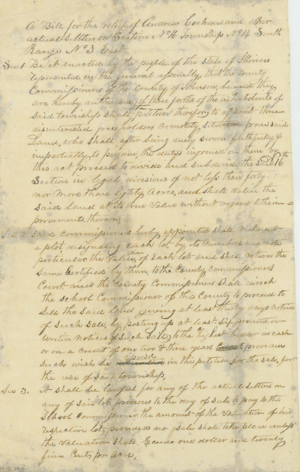 A Bill for the relief of Andrew Cochran and other
actual settlers on Section No 16 Township No 14 South
Range No 3 East
Sec 1 Be it enacted by the people of the state of Illinois
represented in the general assembly that the County
Commissioners of the County of and they
are hereby authorised if three fourths of the inhabitants of
said township shall petition therefor to appoint three
disinterested free holders
Land, who shall after being duly sworn faithfully &
impartially to perform the duties imposed on them by
this act proceed to divide and subdivide the said 16
Section in legal divisions of not less than forty
nor more than eighty acres, and shall value the
said Land at its true value without regard to the im-
provements thereon
Sec 2 Said Commissioners hereby appointed shall make out
a plot designating each lot by its number and
particular the valuation of each lot and shall return the
same Certified by them to the County Commissioners
Court and the County Commissioners shall direct
the school Commissioner of this County to proceed to
sell the said Land giving at least thirty days notice
of such sale, by posting up at least six
written notices of such sale, to the highest bidder in cash
or on a credit of one two & three years
such wish be in the petition for the sale, for
the use of said township,
Sec 3. It shall be lawful for any of the actual settlers on
any of said lots previous to the day of sale to pay to the
School Commissioner the amount of the valuation of his
respective lot, provided no sale shall take place unless
the valuation shall Exceed one dollar and twenty
five Cents per acre,